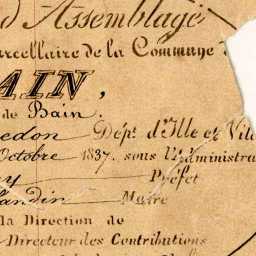 d'Assemblage
arcellaire de la Commune
AIN,
de Bain.
edon Dépt. d'Ille et Vil
Octobre 1837. sous l'Administra
y Préfet
landin Maire
la Direction de
Directeur des Contributions